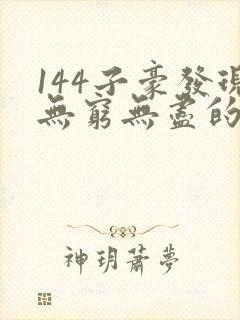 144子豪發現
無窮無盡的
神玥蕭夢